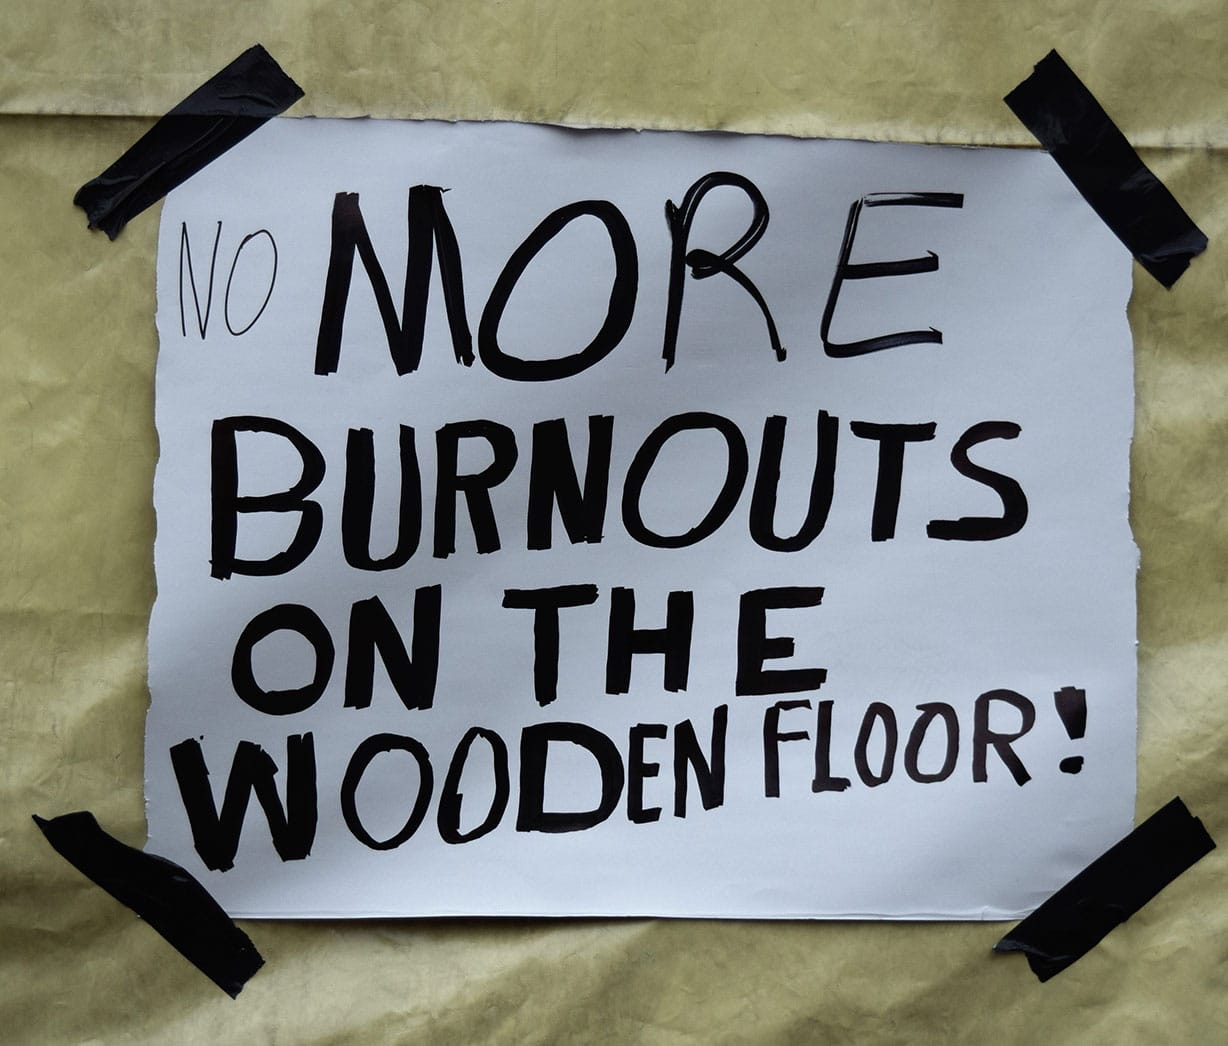 NO MORE
BURNOUTS
ON THE
WOODEN FLOOR!